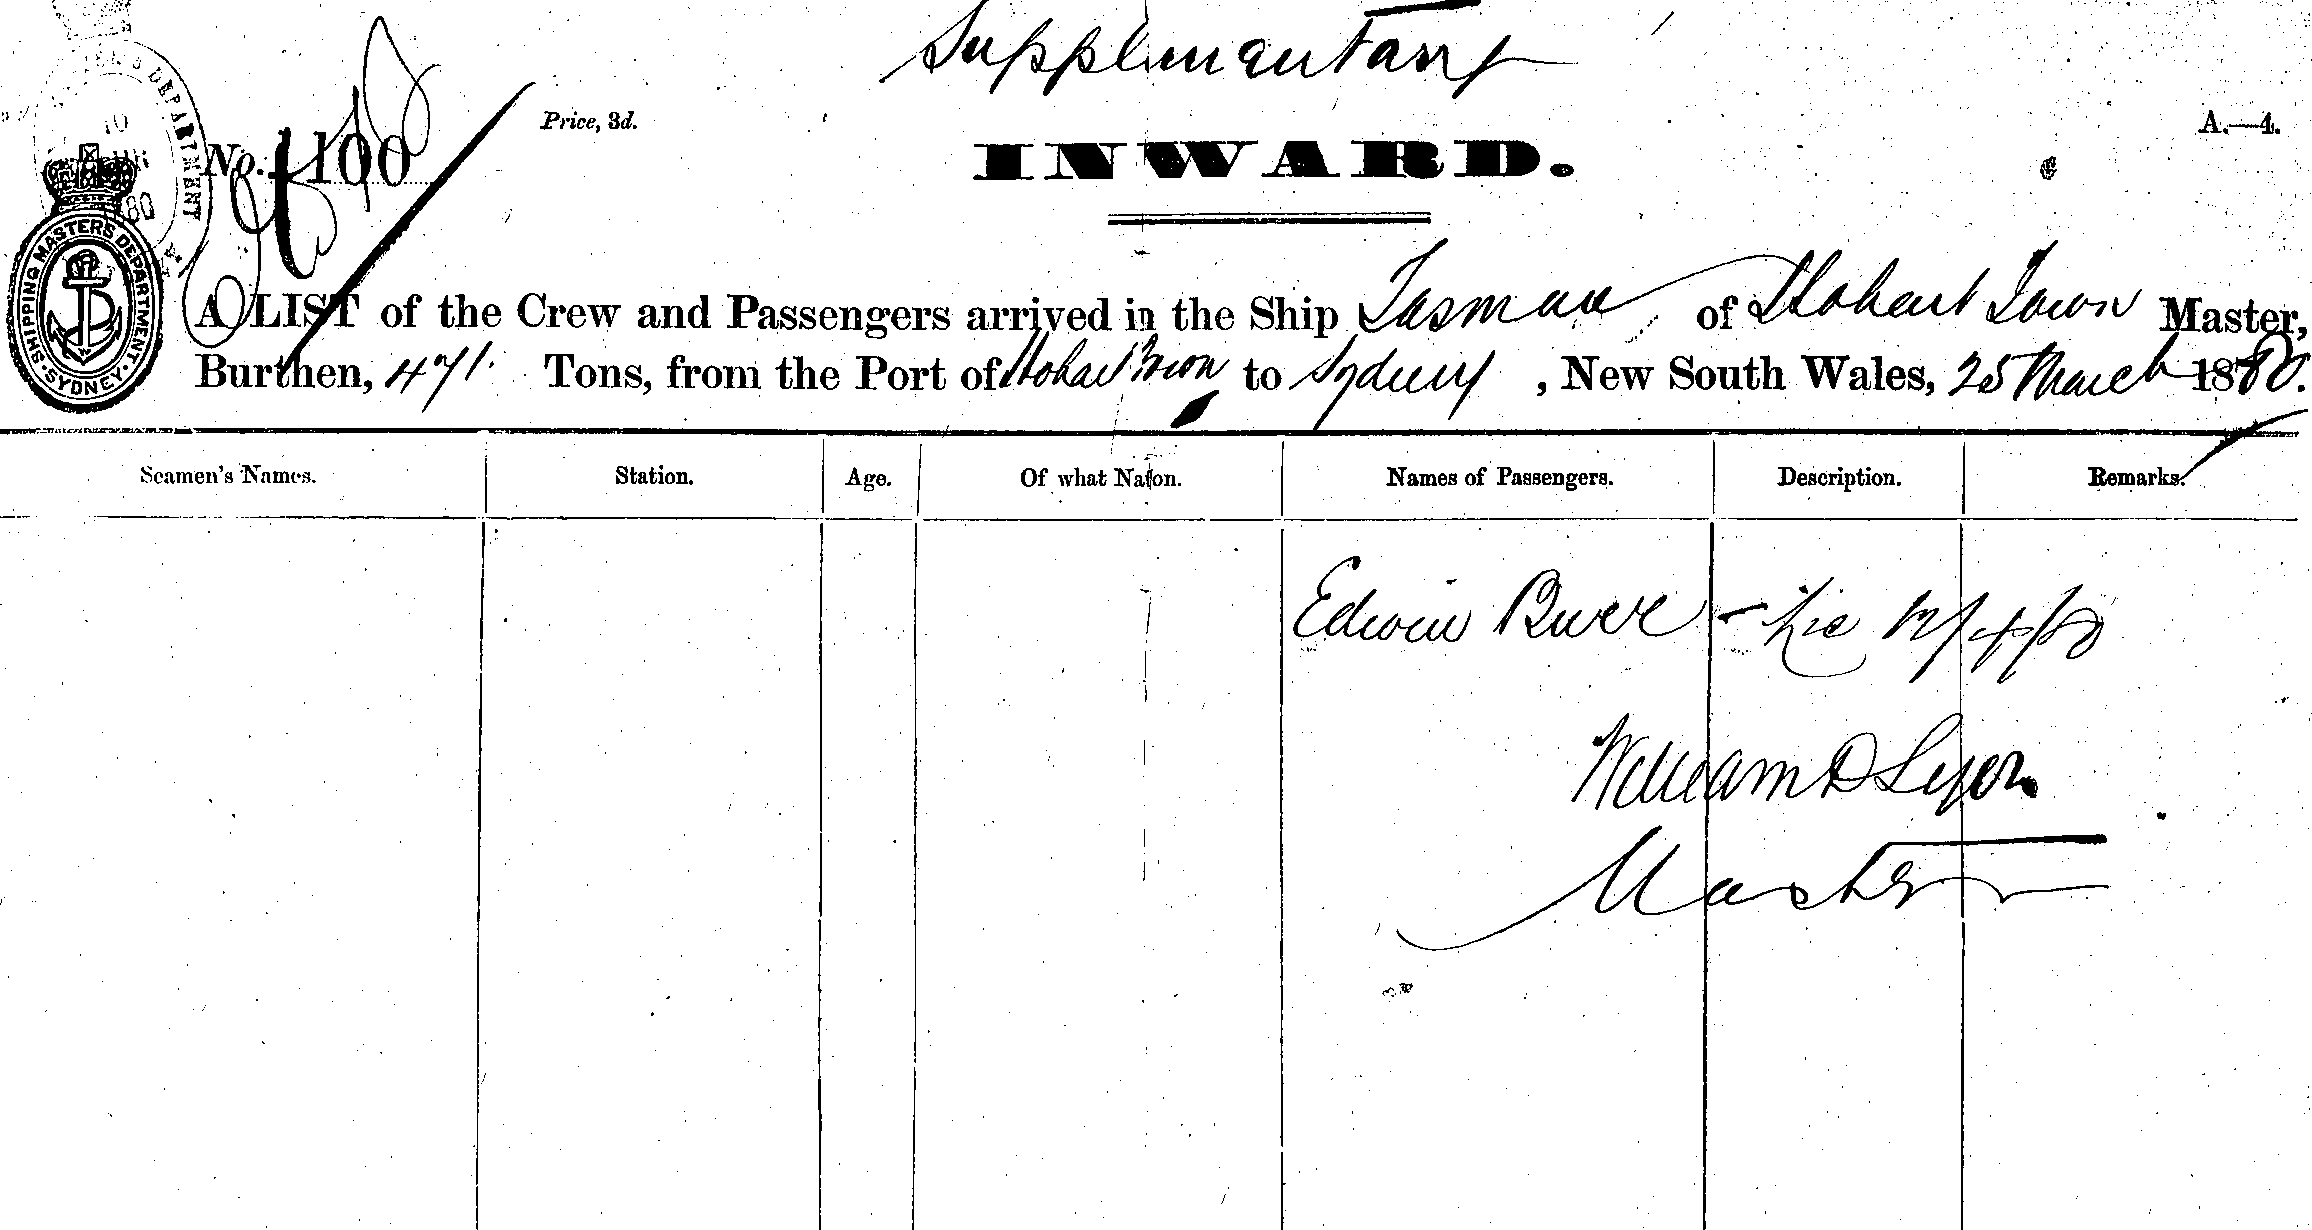 Supplimentary
No. 1100
Price, 3d.
INWARD.
A.—4.
SHIPPING MASTER'S DEPARTMENT
SYDNEY
A LIST of the Crew and Passengers arrived in the Ship Tasman of Hobart Town Master,
Burthen, 471 Tons, from the Port of Hobart Town to Sydney, New South Wales, 25 March 1880.
Seamen's Names. Station. Age. Of what Nation. Names of Passengers. Description. Remarks.
Edwin
William D Lyon
Master